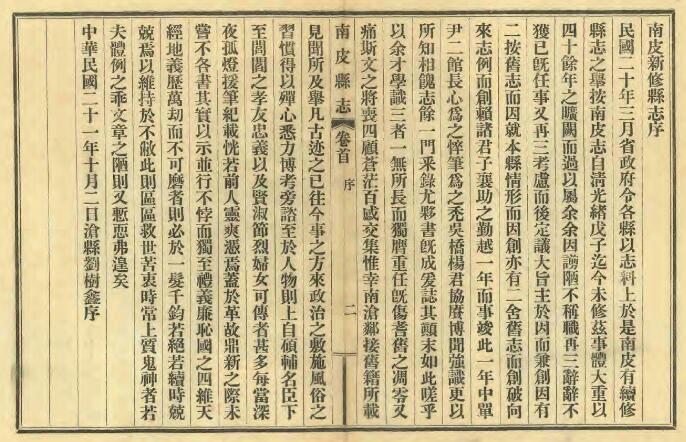 南皮新修縣志序
民國二十年三月省政府令各縣以志料上於是南皮有續修
縣志之舉按南皮志自清光緒戊子迄今未修茲事體大重以
四十餘年之曠闕而過以屬余余因謭陋不稱職再三辭辭不
獲已旣任事又再三考慮而後定議大旨主於因而兼創因有
二按舊志而因就本縣情形而因創亦有二舍舊志而創破向
來志例而創賴諸君子襄助之勤越一年而事竣此一年中單
尹二館長心為之悴筆為之禿吳橋楊君協賡博聞強識更以
所知相餽志餘一門釆錄尤夥書旣成爰誌其顛末如此嗟乎
以余才學識三者一無所長而獨膺重任旣傷耆舊之凋零又
痛斯文之將喪四顧蒼茫百感交集惟幸南滄鄰接舊籍所載
南皮縣志
卷首
序
二
見聞所及舉凡古迹之已往今事之方來政治之敷施風俗之
習慣得以殫心悉力博考旁諮至於人物則上自碩輔名臣下
至閭閻之孝友忠義以及賢淑節烈婦女可傳者甚多每當深
夜孤燈援筆紀載恍若前人靈爽憑焉蓋於革故鼎新之際未
嘗不各書其實以示並行不悖而獨至禮義廉恥國之四維天
經地義歷萬劫而不可磨者則必於一髮千鈞若絕若續時兢
兢焉以維持於不敝此則區區救世苦衷時常上質鬼神者若
夫體例之乖文章之陋則又慙恧弗遑矣
中華民國二十一年十月二日滄縣劉樹鑫序